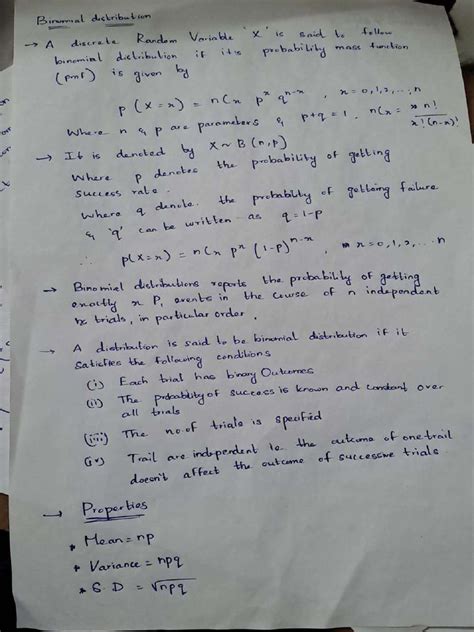 Binomial distribution
→ A discrete Random Variable 'X' is said to follow
binomial distribution if it's probability mass function
(pmf) is given by
p(X=x) = nCx p^x q^(n-x) , x=0,1,2,...,n
Where n & p are parameters & p+q=1, nCx = n!/x!(n-x)!
→ It is denoted by X~B(n,p)
Where p denotes the probability of getting
success rate.
Where q denote the probability of getteing failure
& 'q' can be written as q=1-p
∴ p(X=x) = nCx p^x (1-p)^(n-x) , x=0,1,2,...n
→ Binomial distributions reports the probability of getting
exactly x P, events in the course of n independent
trials, in particular order.
→ A distribution is said to be binomial distribution if it
satisfies the following conditions
(i) Each trial has binary Outcomes
(ii) The probablity of success is known and constant over
all trials
(iii) The no.of trials is specified
(iv) Trail are independent ie the outcome of one trail
doesn't affect the outcome of successive trials
→ Properties
* Mean = np
* Variance = npq
* S.D = √npq